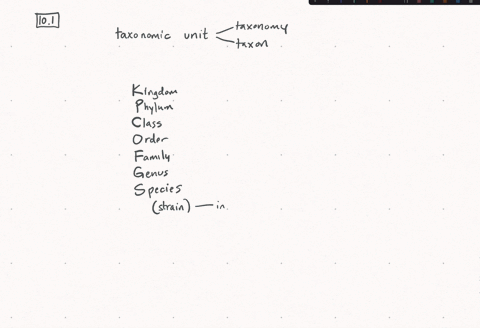 10.1
taxonomic unit
taxonomy
taxon
Kingdom
Phylum
Class
Order
Family
Genus
Species
(strain) — in